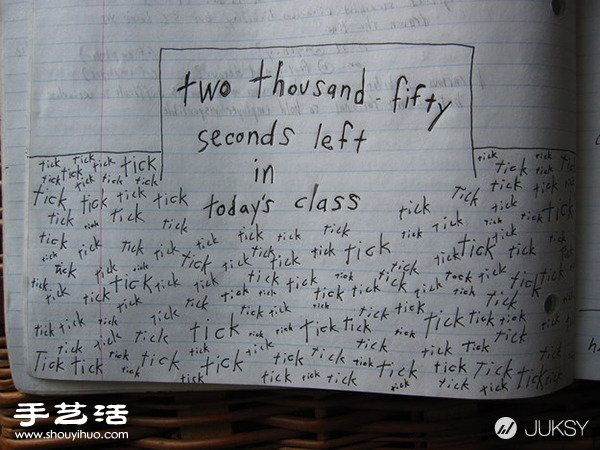 two thousand fifty
seconds left
in
today's class
tick tick tick tick tick tick tick
tick tick tick tick tick tick tick tick
tick tick tick tick tick tick tick tick
tick tick tick tick tick tick tick tick
tick tick tick tick tick tick tick tick tick
tick tick tick tick tick tick tick tick tick
tick tick tick tick tick tick tick tick tick tick
tick tick tick tick tick tick tick tick tick tick
tick tick tick tick tick tick tick tick tick tick
tick tick tick tick tick tick tick tick tick
tick tick tick tick tick tick tick tick tick tick
tick tick tick tick tick tick tick tick tick tick
tick tick tick tick tick tick tick tick tick tick
tick tick tick tick tick tick tick tick
手艺活
www.shouyihuo.com
JUKSY